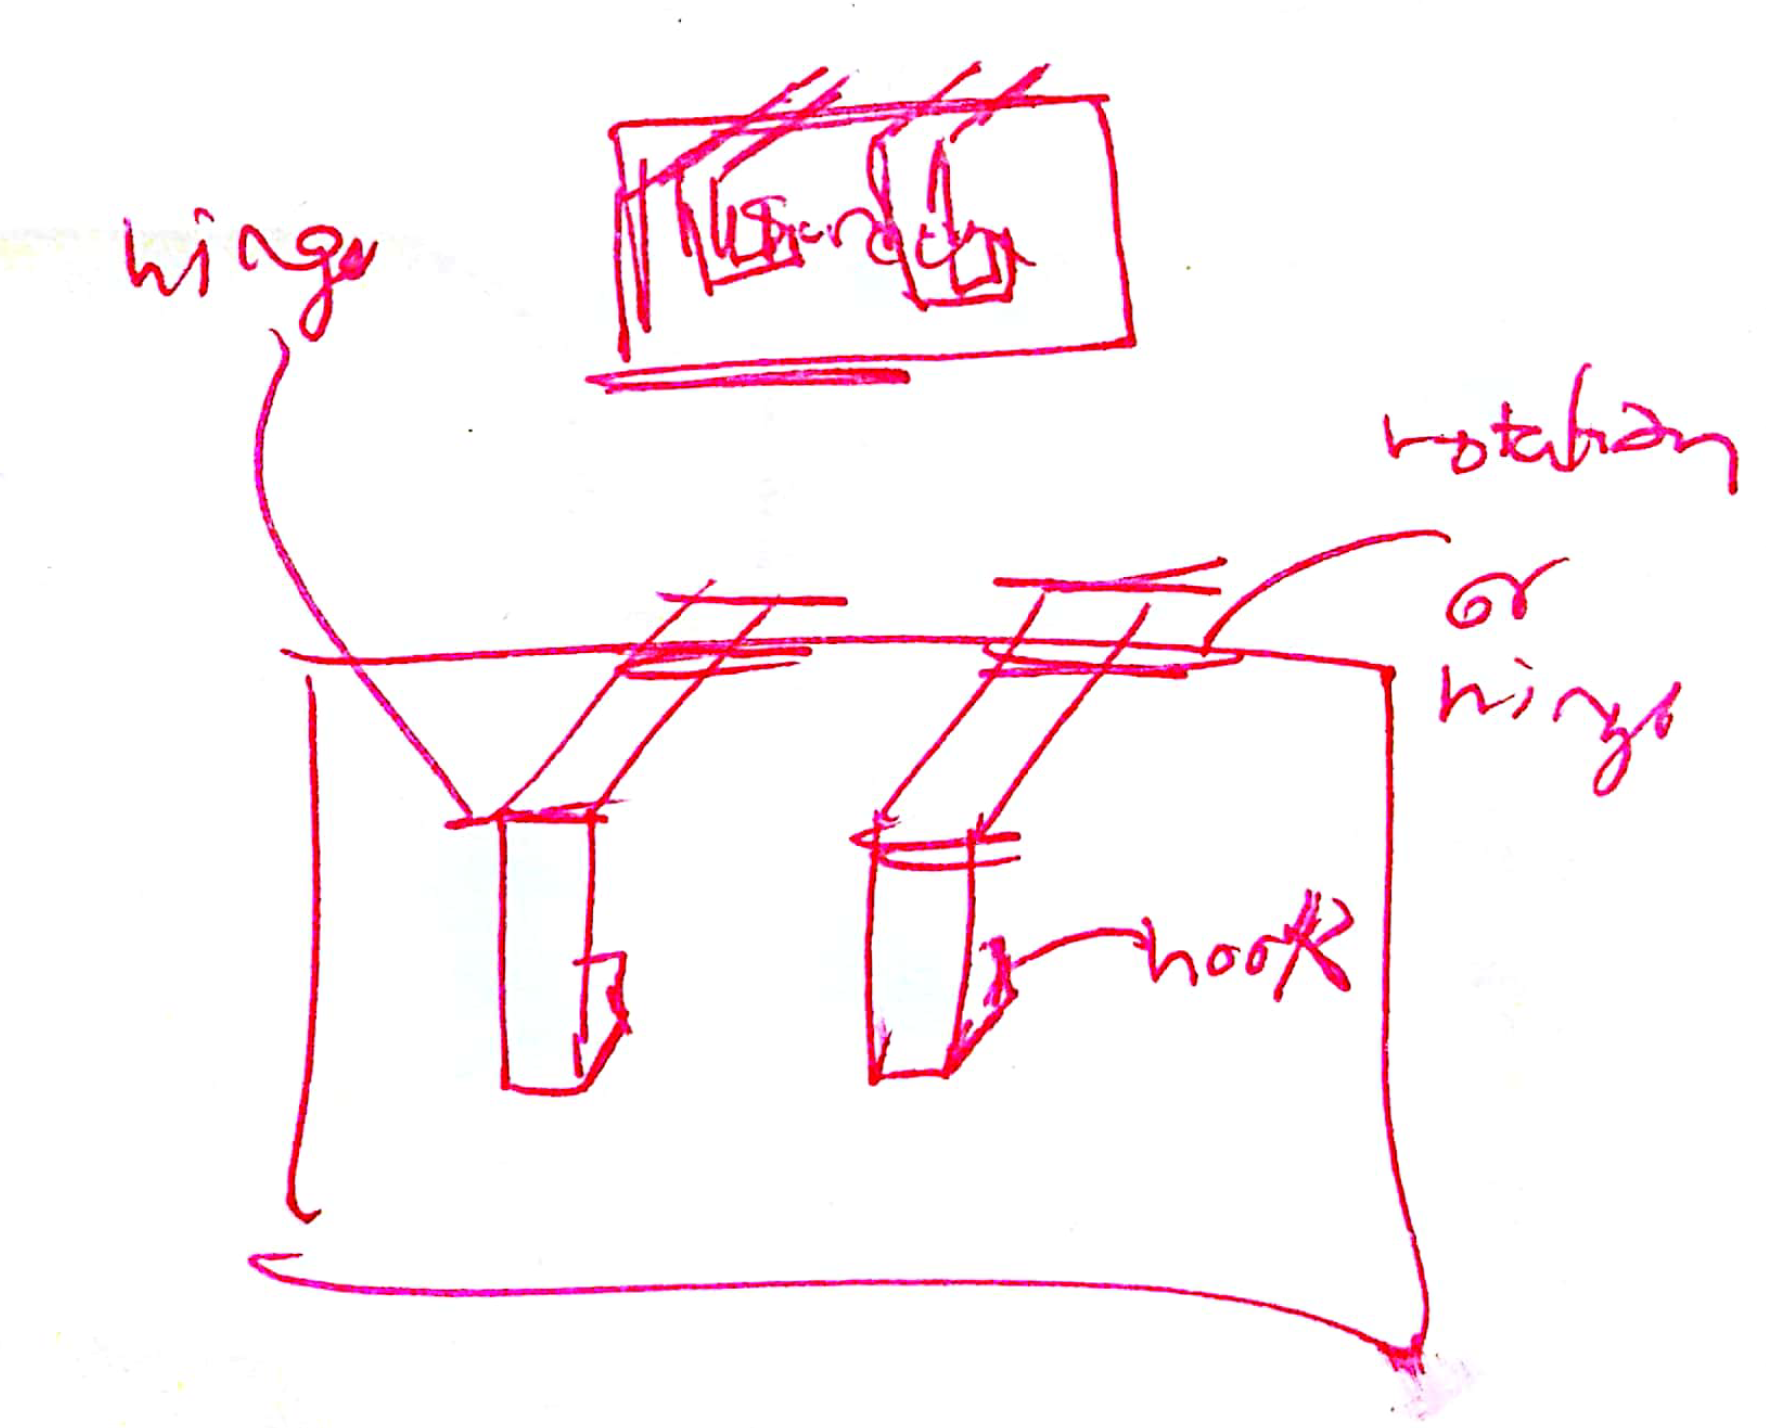 hinge
rotation
or
hinge
hook